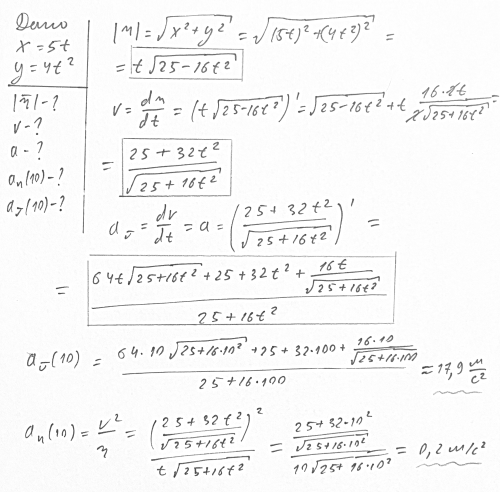 Дано
x = 5t
y = 4t²
|r̄| - ?
v - ?
a - ?
aₙ(10) - ?
a𝜏(10) - ?
|r| = √(x² + y²) = √((5t)² + (4t²)²) =
= t√(25 - 16t²)
v = dr/dt = (t√(25 - 16t²))' = √(25 - 16t²) + t (16·2t)/(2√(25 + 16t²)) =
= (25 + 32t²)/√(25 + 16t²)
a𝜏 = dv/dt = a = ((25 + 32t²)/√(25 + 16t²))' =
= (64t√(25 + 16t²) + 25 + 32t² + 16t/√(25 + 16t²))/(25 + 16t²)
a𝜏(10) = (64·10√(25 + 16·10²) + 25 + 32·100 + 16·10/√(25 + 16·100))/(25 + 16·100) = 17,9 м/с²
aₙ(10) = v²/r = ((25 + 32t²)/√(25 + 16t²))²/(t√(25 + 16t²)) = ((25 + 32·10²)/√(25 + 16·10²))/(10√(25 + 16·10²)) = 0,2 м/с²